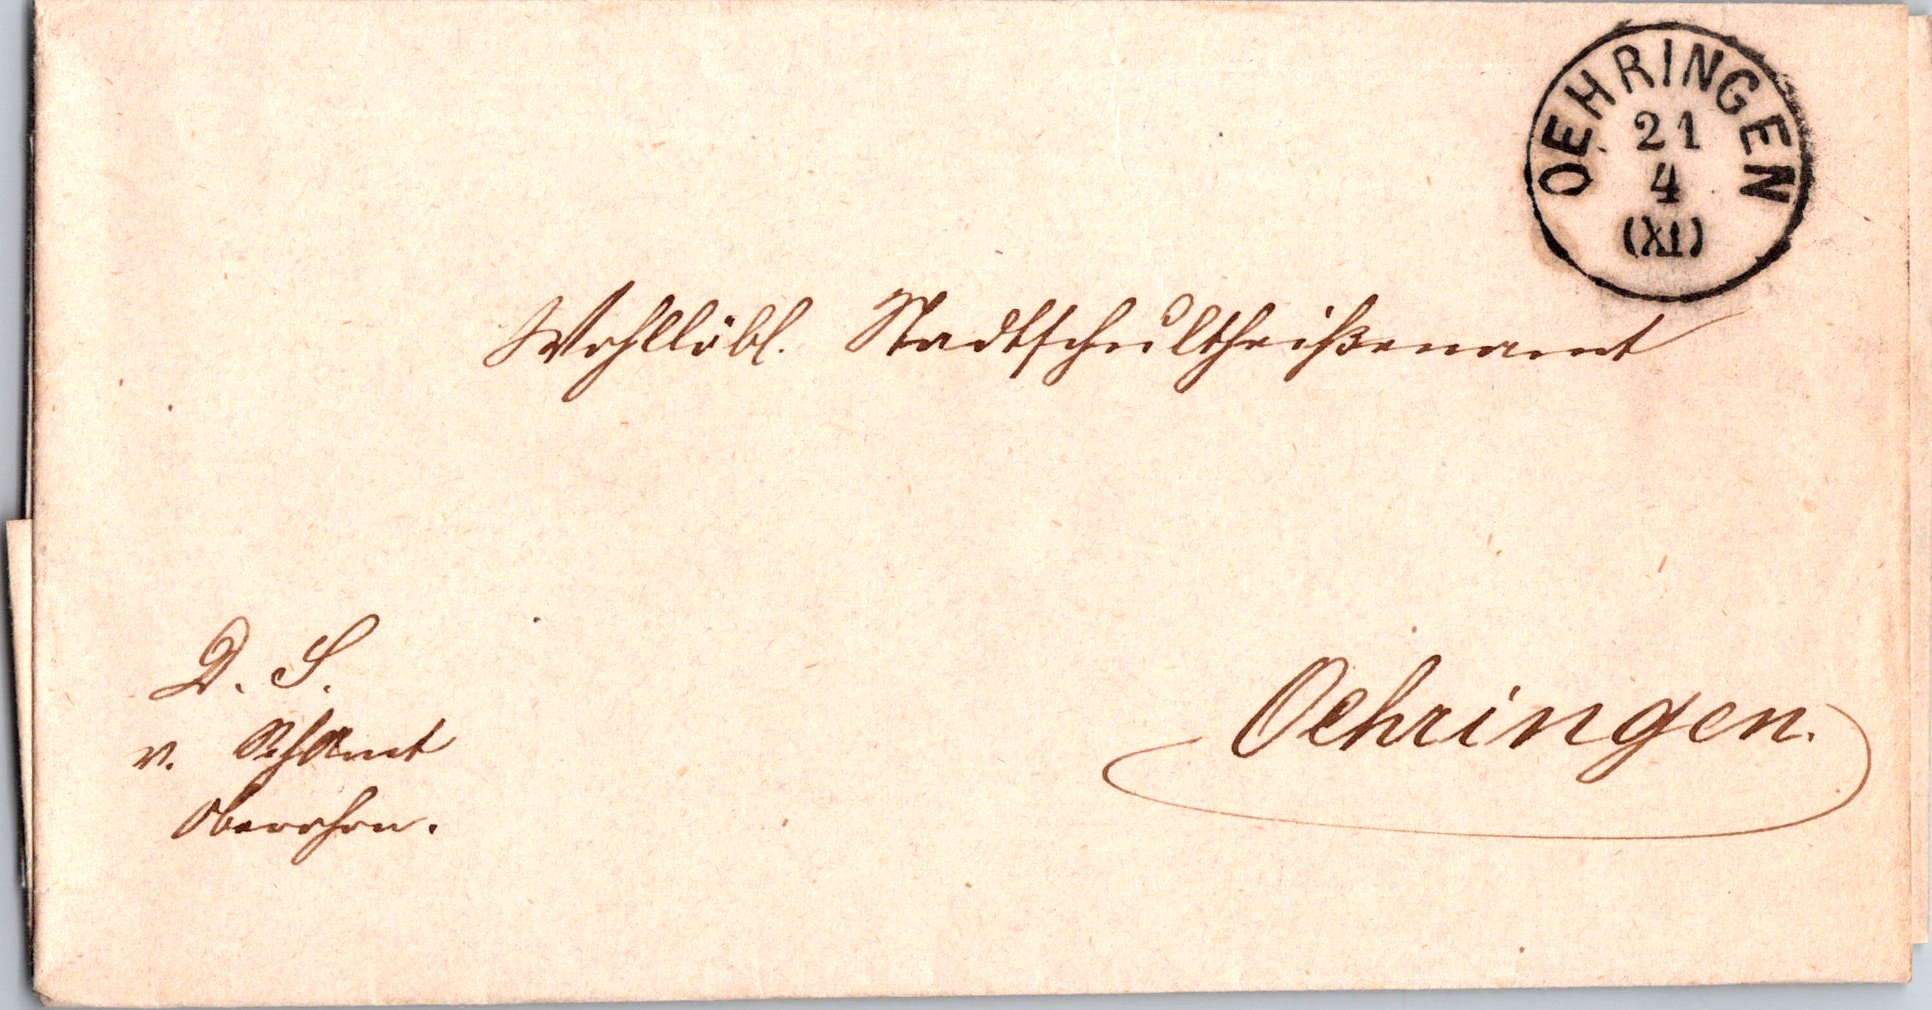 OEHRINGEN
21
4
(XI)
Wohllöbl. Stadtschultheißenamt
D. S.
v. Amt
Oehringen.